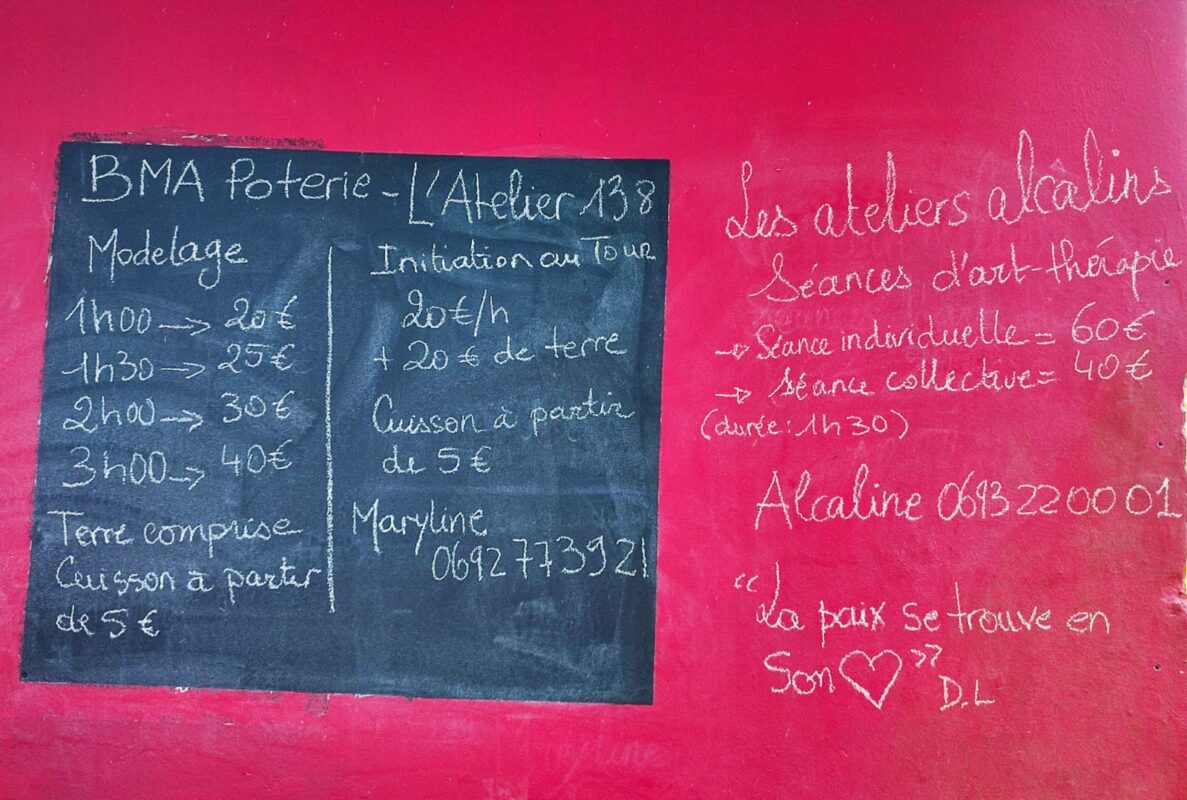 BMA Poterie - L'Atelier 138
Modelage
1h00 → 20€
1h30 → 25€
2h00 → 30€
3h00 → 40€
Terre comprise
Cuisson à partir
de 5 €
Initiation au Tour
20€/h
+ 20 € de terre
Cuisson à partir
de 5 €
Maryline
0692 773921
Les ateliers alcalins
Séances d'art-thérapie
→ Séance individuelle = 60€
→ Séance collective = 40€
(durée : 1h30)
Alcaline 0693 22 00 01
“La paix se trouve en
Son ♡”
D.L